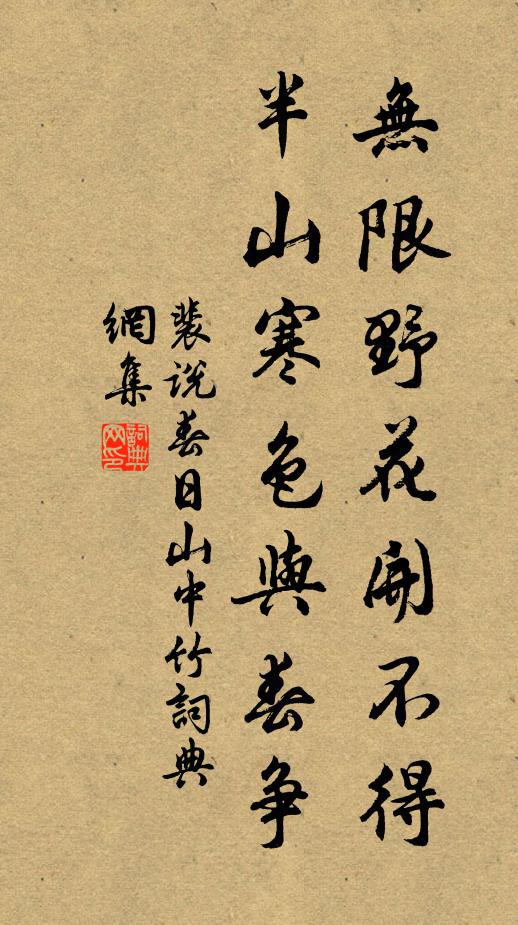 無限野花開不得
半山寒色與春爭
裴說春日山中竹詞典
網集
詞典網印